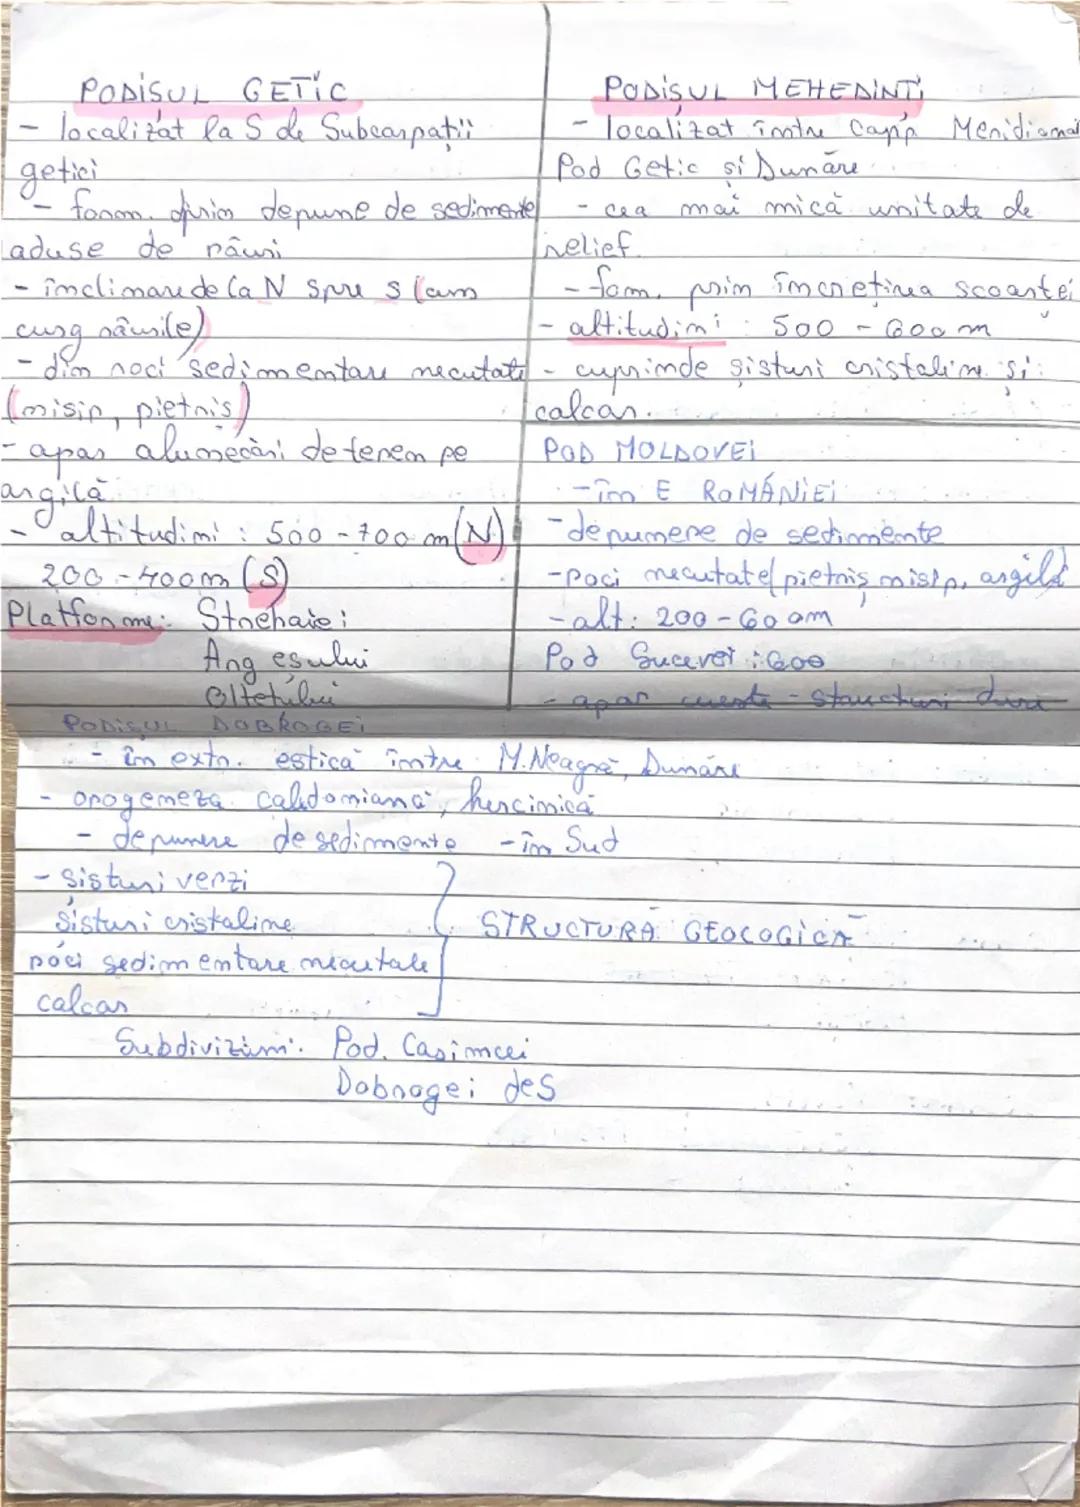 PODIȘUL GETIC
- localizat la S de Subcarpații
getici
- form. prin depune de sedimente
aduse de râuri
- înclinare de la N spre S (cum
curg râurile)
- din roci sedimentare necutate
(nisip, pietriș)
- apar alunecări de teren pe
argilă
- altitudini : 500 - 700 m (N)
200 - 400 m (S)
Platforme: Strehaiei
Argeșului
Oltețului
PODIȘUL MEHEDINȚI
- localizat între Carp Meridionali
Pod Getic și Dunăre
- cea mai mică unitate de
relief.
- form. prin încrețirea scoarței
- altitudini : 500 - 600 m
- cuprinde șisturi cristaline și
calcar.
POD MOLDOVEI
- în E ROMÂNIEI
- depunere de sedimente
- roci necutate (pietriș, nisip, argilă
- alt: 200 - 600m
Pod Sucevei : 600
- apar cueste - structuri dure
PODIȘUL DOBROGEI
- în extr. estică între M.Neagră, Dunăre
- orogeneza caledoniană, hercinică
- depunere de sedimente - în Sud
- șisturi verzi
șisturi cristaline
roci sedimentare necutate
calcar
STRUCTURĂ GEOLOGICĂ
Subdiviziuni: Pod. Casimcei
Dobrogei de S